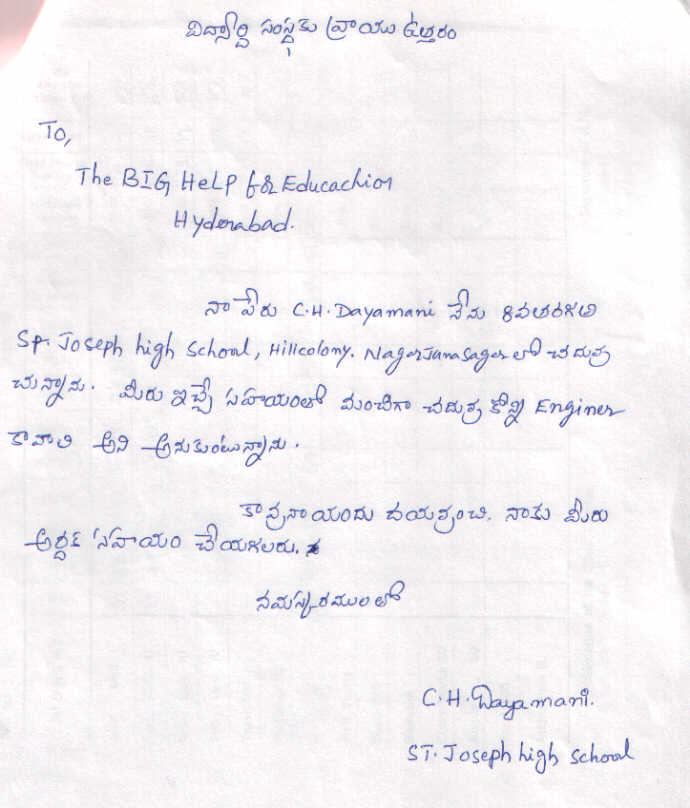 విద్యార్థి సంస్థకు వ్రాయు ఉత్తరం
To,
The BIG HeLP for Educachion
Hyderabad.
నా పేరు C.H. Dayamani నేను 8వతరగతి
Sp. Joseph high School, Hillcolony. NagarJanaSagar లో చదువు
చున్నాను. మీరు ఇచ్చే సహయంతో మంచిగా చదువు కోన్ని Enginer
కావాలి అని అనుకుంటున్నాను.
కావునాయందు దయవుంచి. నాకు మీరు
అర్ధిక సహయం చేయగలరు.
నమస్కరములతో
C.H. Dayamani.
ST. Joseph high School